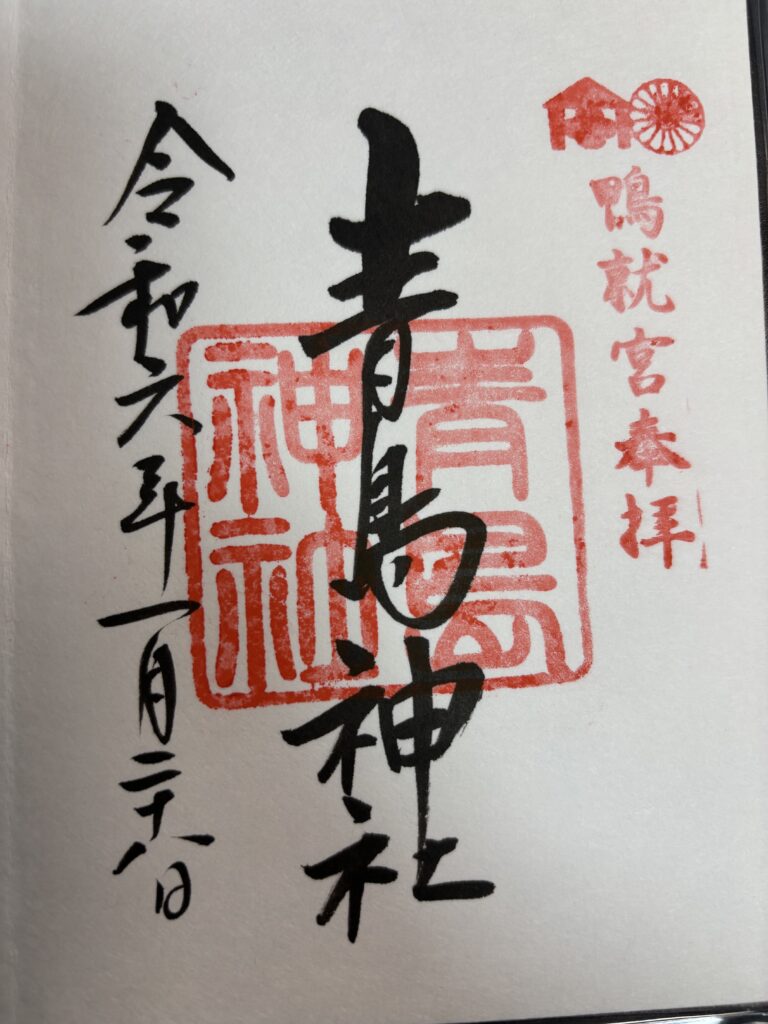 鴨就宮奉拝
青島神社
青島
神社
令和六年一月二十八日